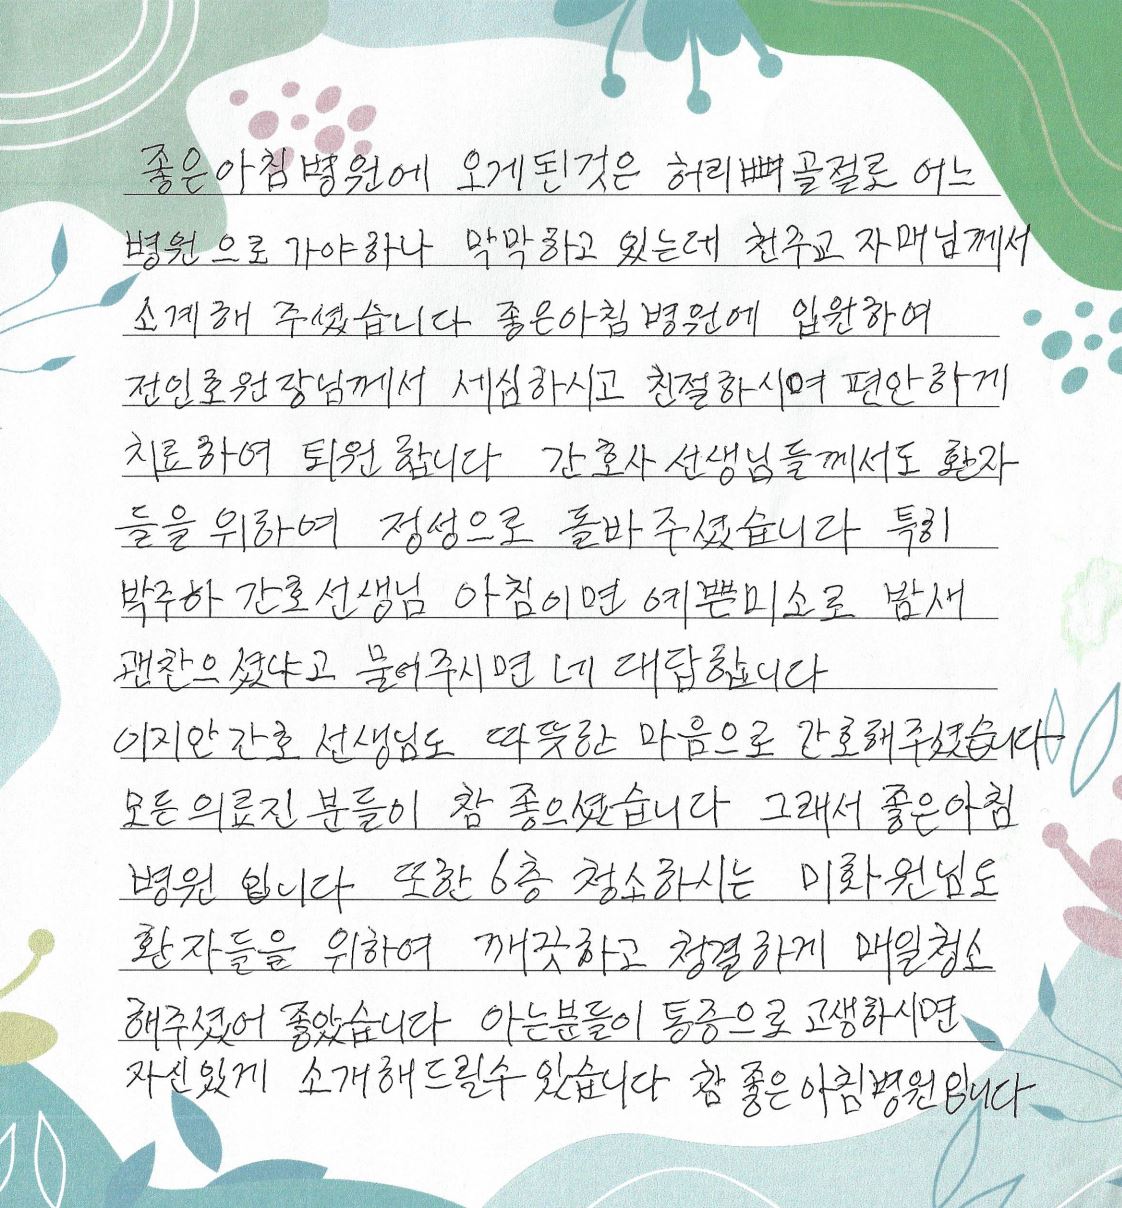 좋은아침병원에 오게된것은 허리뼈골절로 어느
병원으로 가야하나 막막하고 있는데 천주교 자매님께서
소계해 주셨습니다 좋은아침병원에 입원하여
전인호원장님께서 세심하시고 친절하시며 편안하게
치료하여 퇴원합니다 간호사선생님들께서도 환자
들을 위하여 정성으로 돌바주셨습니다 특히
박주하 간호선생님 아침이면 예쁜미소로 밤새
괜찬으셨냐고 물어주시면 네 대답합니다
이지안간호 선생님도 따뜻한 마음으로 간호해주셨습니다
모든의료진분들이 참 좋으셨습니다 그래서 좋은아침
병원 입니다 또한 6층 청소하시는 미화원님도
환자들을 위하여 깨끗하고 청결하게 매일청소
해주셨어 좋았습니다 아는분들이 통증으로 고생하시면
자신있게 소개해드릴수 있습니다 참 좋은아침병원입니다